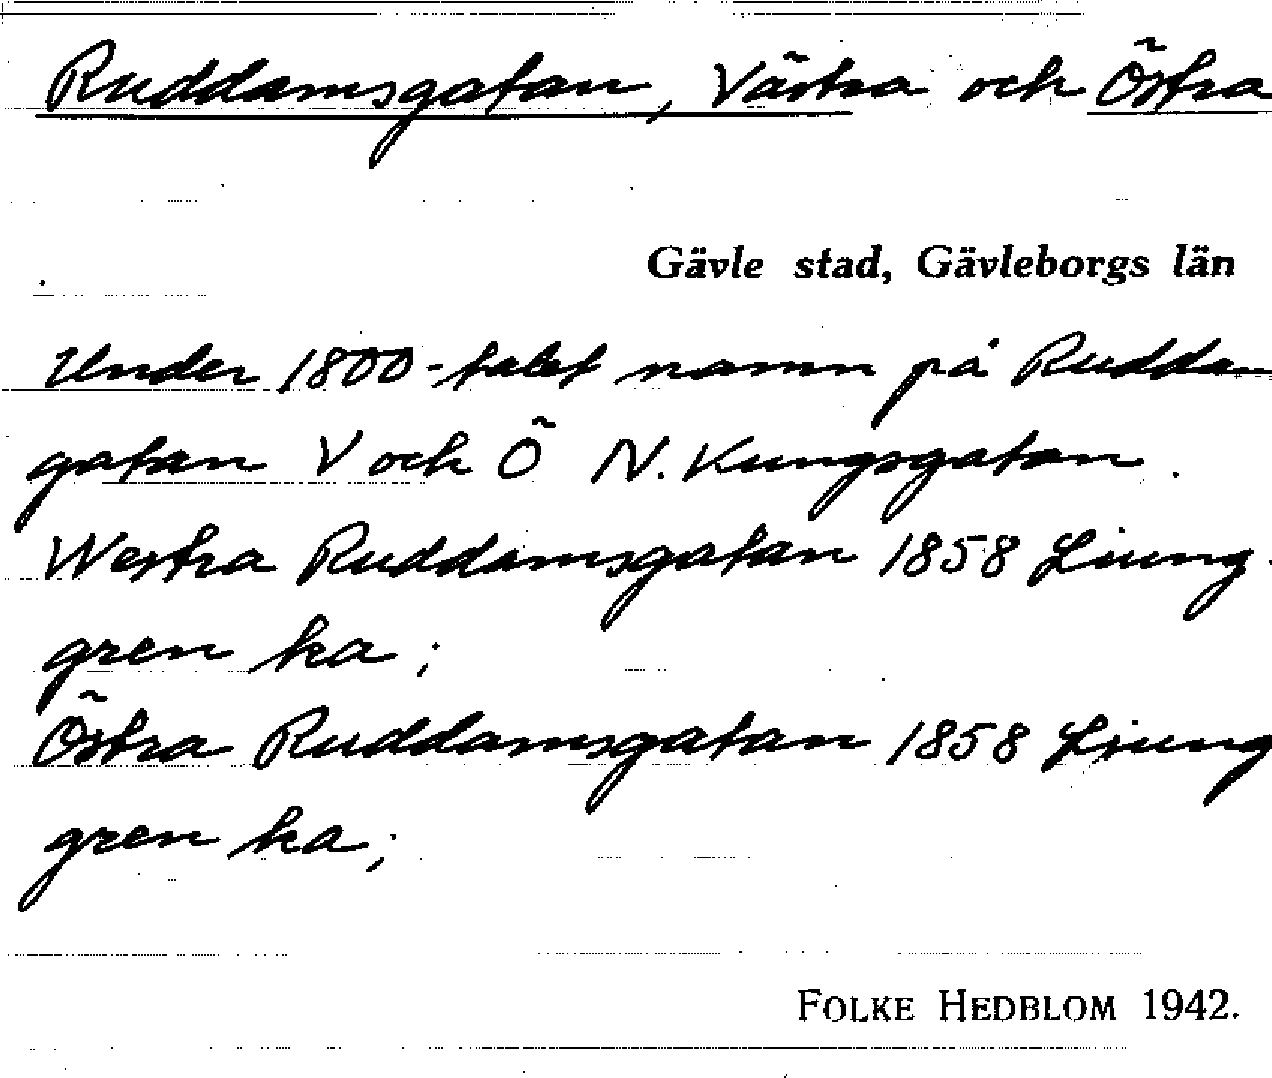 Ruddamsgatan, Västra och Östra
Gävle stad, Gävleborgs län
Under 1800-talet namn på Ruddam
gatan V och Ö N. Kungsgatan.
Westra Ruddamsgatan 1858 Ljung-
gren ka;
Östra Ruddamsgatan 1858 Ljung
gren ka;
FOLKE HEDBLOM 1942.